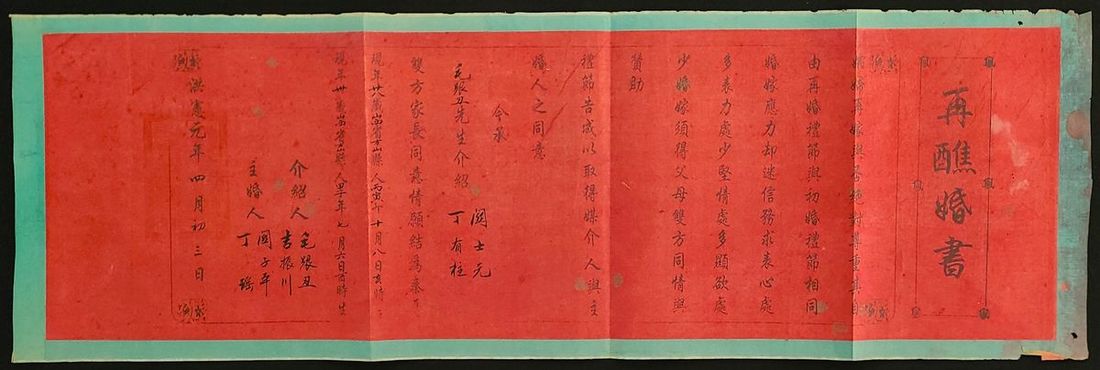 再醮婚書
孀婦再嫁與否絶對尊重其自
由再婚禮節與初婚禮節相同
婚嫁應力却迷信務求表心處
多表力處少堅情處多顯欲處
少婚嫁須得父母雙方同情與
贊助
禮節告成以取得媒介人與主
婚人之同意
今承
毛張丑先生介紹
關士元
丁有柱
雙方家長同意情願結為秦
現年廿八歲 省 山縣人丙寅年十月八日亥時
現年卅 歲 省 縣人 年七月六日酉時生
介紹人
毛張丑
吉振川
主婚人
關子平
丁 瑤
洪憲元年四月初三日